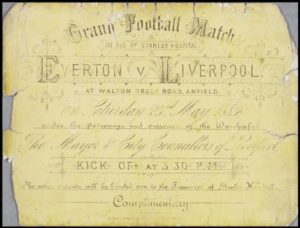 Grand Football Match
IN AID OF STANLEY HOSPITAL
EVERTON V. LIVERPOOL.
AT WALTON BRECK ROAD, ANFIELD.
On Saturday 23rd May 188
under the patronage and presence of the Worshipful
The Mayor & City Councillors of Liverpool.
KICK OFF AT 3.30 P.M.
The entire proceeds will be handed over to the Treasurer of Stanley Hospital
Complimentary